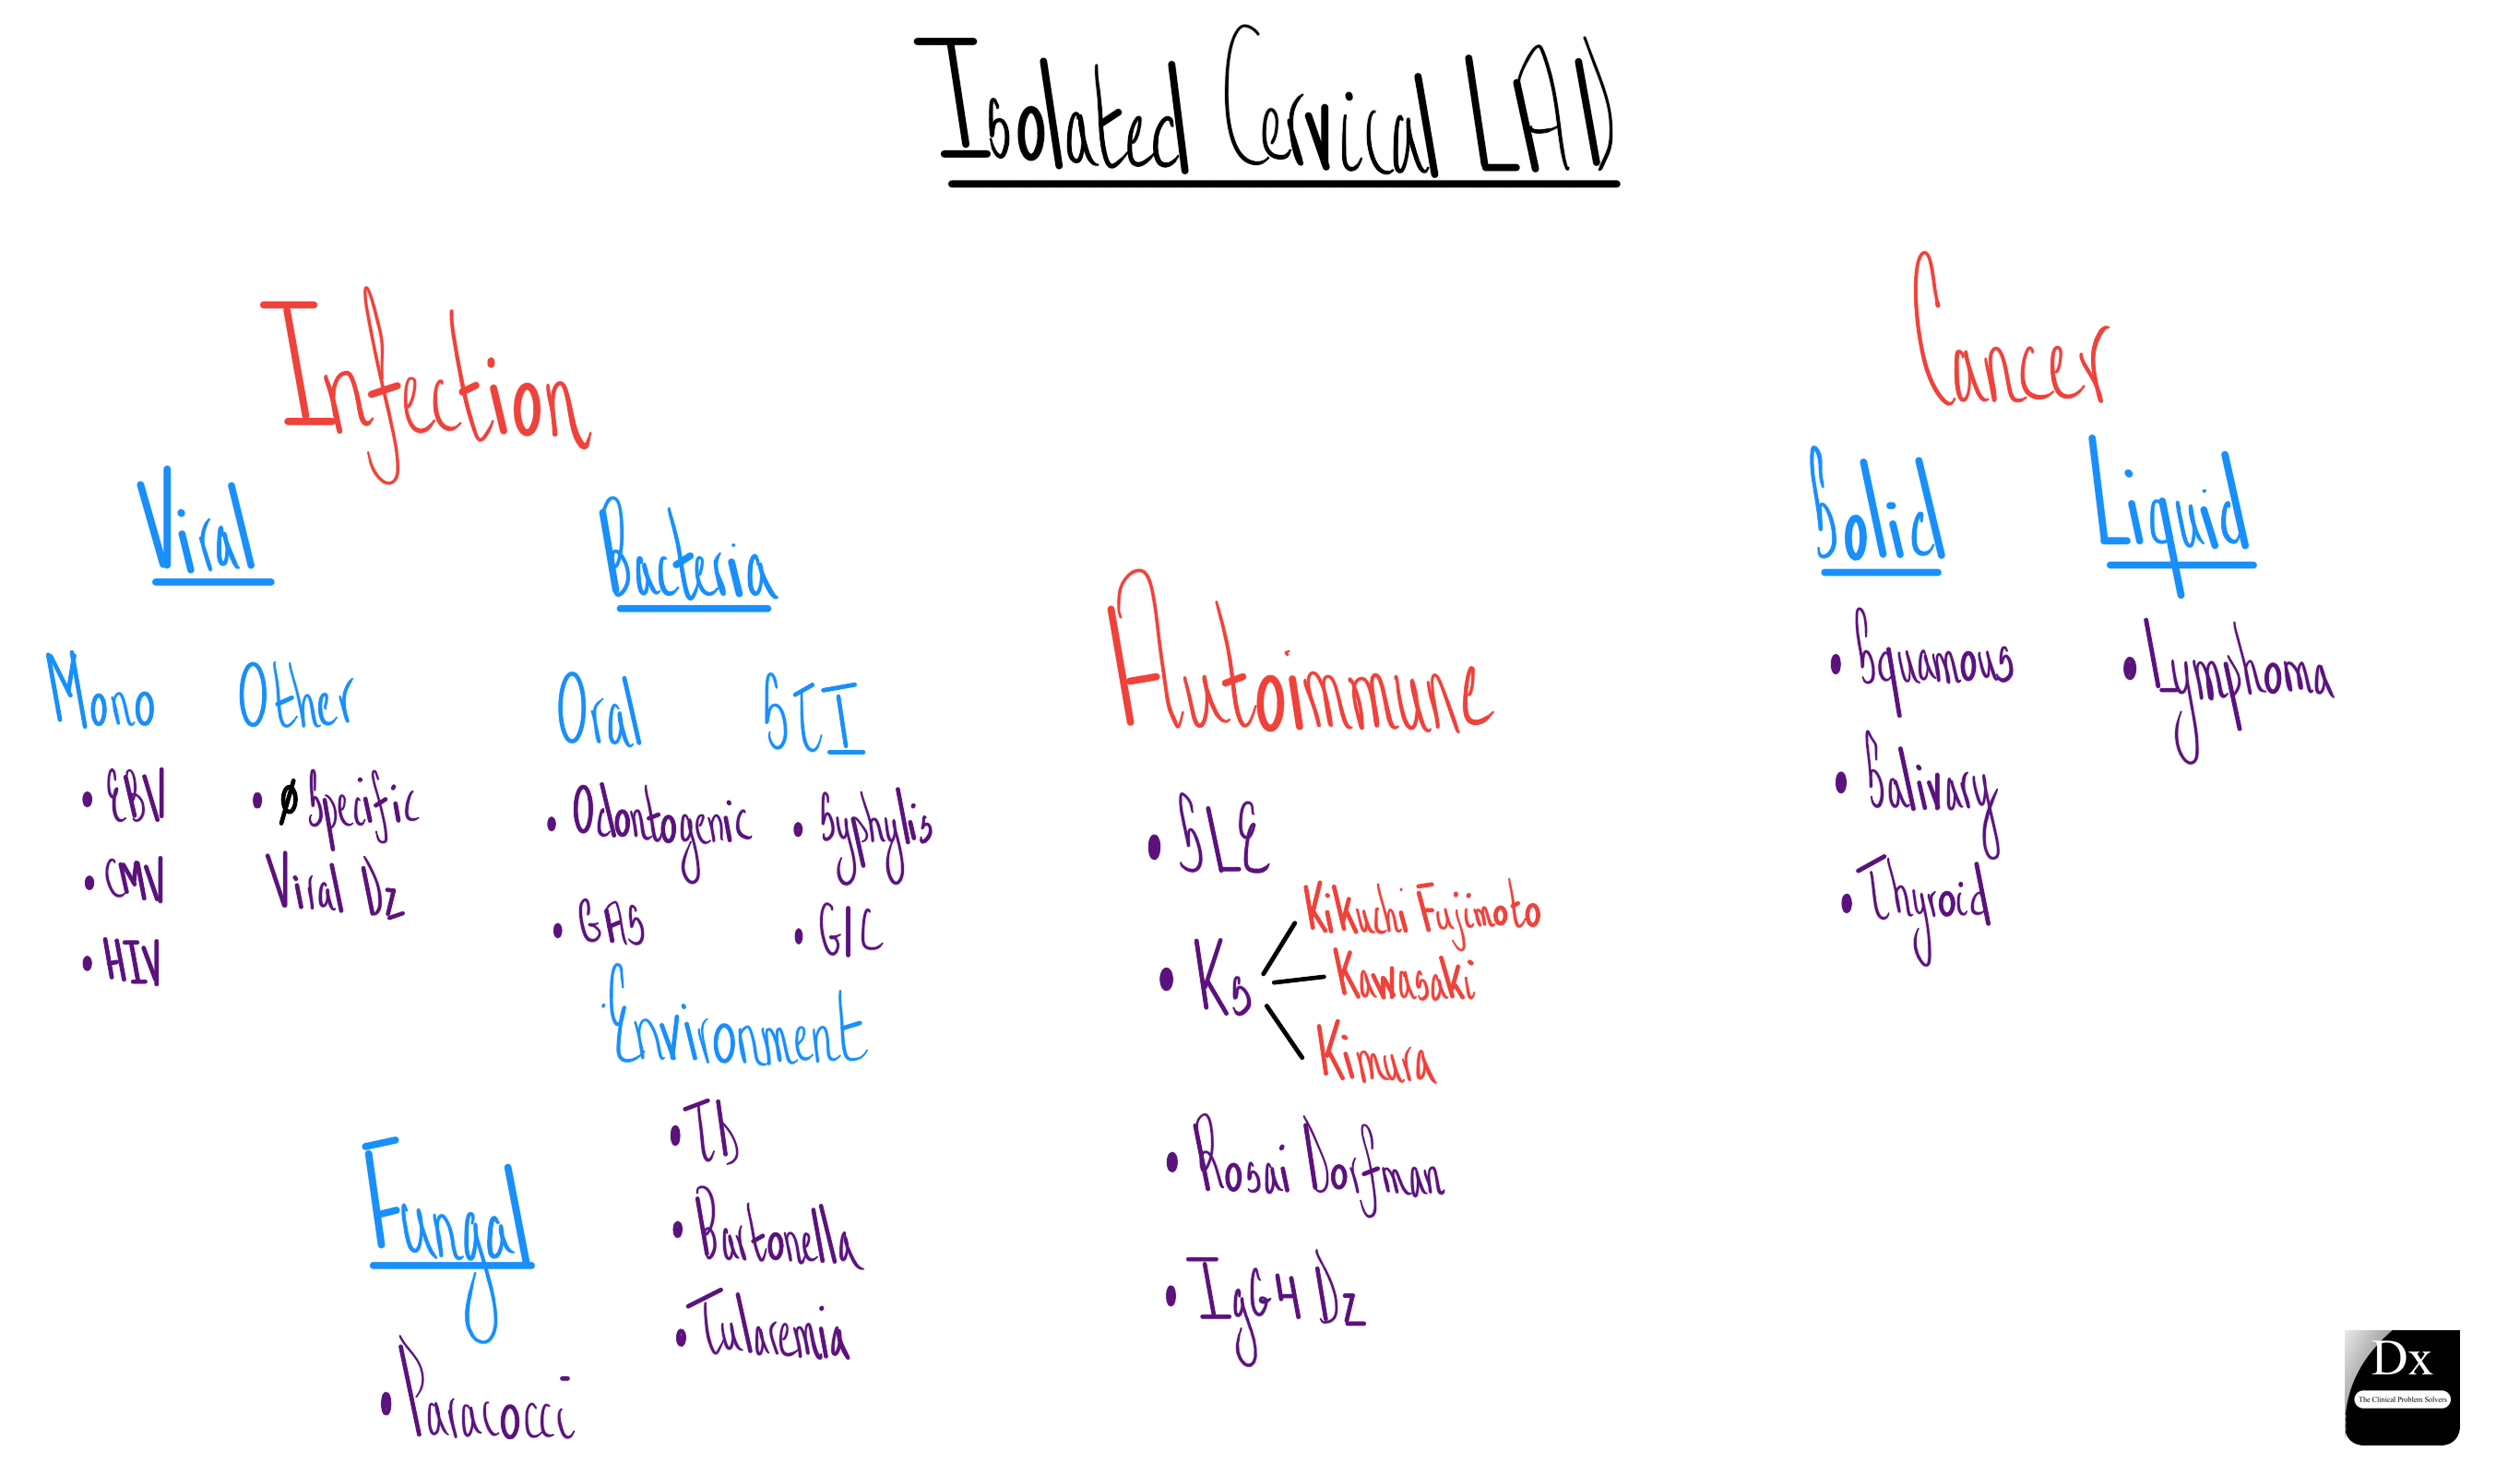 Isolated Cervical LAD
Infection
Viral
Mono
• EBV
• CMV
• HIV
Other
• ∅ Specific
Viral Dz
Bacteria
Oral
• Odontogenic
• GAS
STI
• Syphylis
• G/C
Environment
• TB
• Bartonella
• Tularemia
Fungal
• Paracocci
Autoimmune
• SLE
• Ks
Kikuchi Fujimoto
Kawasaki
Kimura
• Rosai Dorfman
• IgG4 Dz
Cancer
Solid
• Squamous
• Salivary
• Thyroid
Liquid
• Lymphoma
Dx
The Clinical Problem Solvers